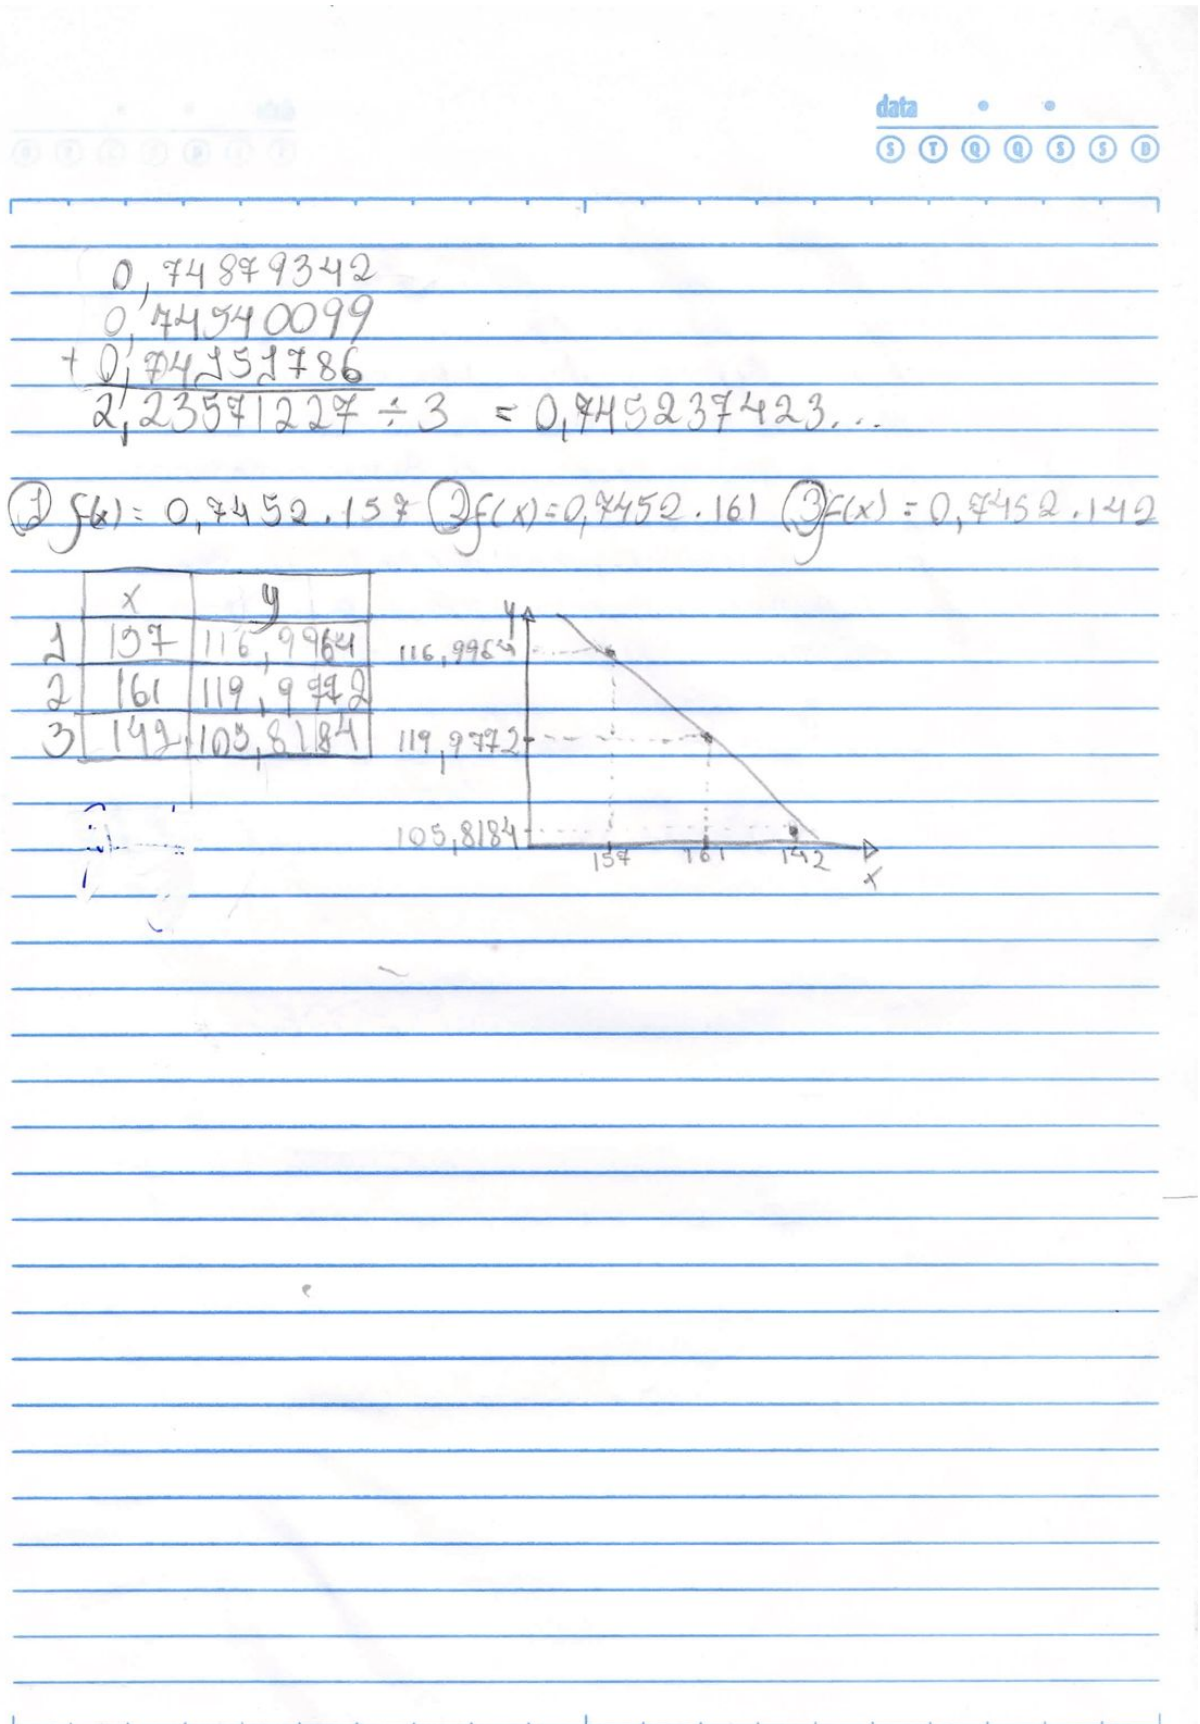 data
S T Q Q S S D
0,74879342
0,74540099
+ 0,74151786
2,23571227 ÷ 3 = 0,745237423...
① f(x) = 0,7452 . 157 ② f(x) = 0,7452 . 161 ③ f(x) = 0,7452 . 142
x y
1 157 116,9964
2 161 119,9772
3 142 105,8184
y
116,9964
119,9772
105,8184
157 161 142
x